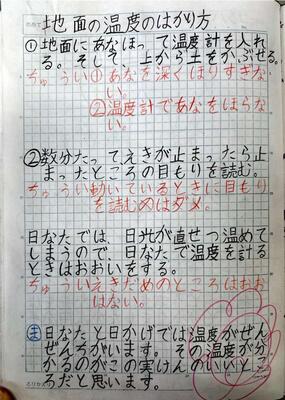 地面の温度のはかり方
①地面にあなほって温度計を入れ
る。そして、上から土をかぶせる。
ちゅうい①あなを深くほりすぎな
い。
②温度計であなをほらな
い。
②数分たって、えきが止まったら止
まったところの目もりを読む。
ちゅうい動いているときに目もり
を読むのはダメ。
日なたでは、日光が直せつ温めて
しまうので、日なたで温度を計る
ときはおおいをする。
ちゅういえきだめのところはおお
はない。
ま日なたと日かげでは温度がぜん
ぜんちがいます。その温度が分
かるのがこの実けんのいいとこ
ろだと思います。